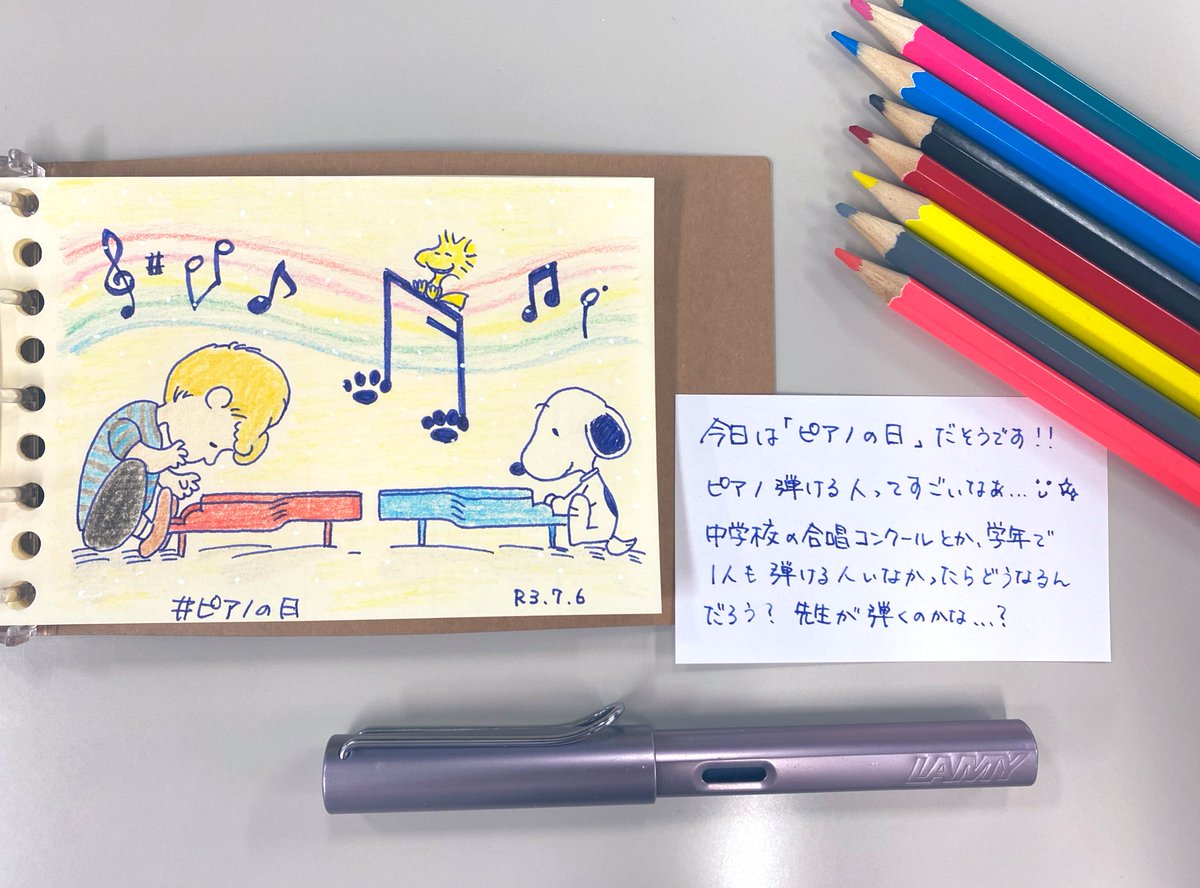 #ピアノの日
R3.7.6
今日は「ピアノの日」だそうです!!
ピアノ弾ける人ってすごいなぁ…
中学校の合唱コンクールとか、学年で
1人も弾ける人いなかったらどうなるん
だろう? 先生が弾くのかな…?
LAMY